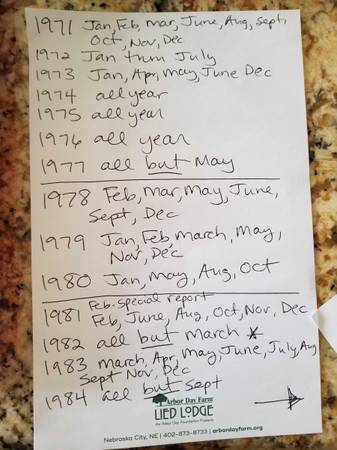 1971 Jan, Feb, Mar, June, Aug, Sept,
Oct, Nov, Dec
1972 Jan thru July
1973 Jan, Apr, May, June Dec
1974 all year
1975 all year
1976 all year
1977 all but May
1978 Feb, Mar, May, June,
Sept, Dec
1979 Jan, Feb, March, May,
Nov, Dec
1980 Jan, May, Aug, Oct
Feb-special report
1981 Feb, June, Aug, Oct, Nov, Dec
1982 all but March *
1983 March, Apr, May, June, July, Aug
Sept Nov, Dec
1984 all but Sept
Arbor Day Farm
LIED LODGE
An Arbor Day Foundation Property
Nebraska City, NE | 402-873-8733 | arbordayfarm.org